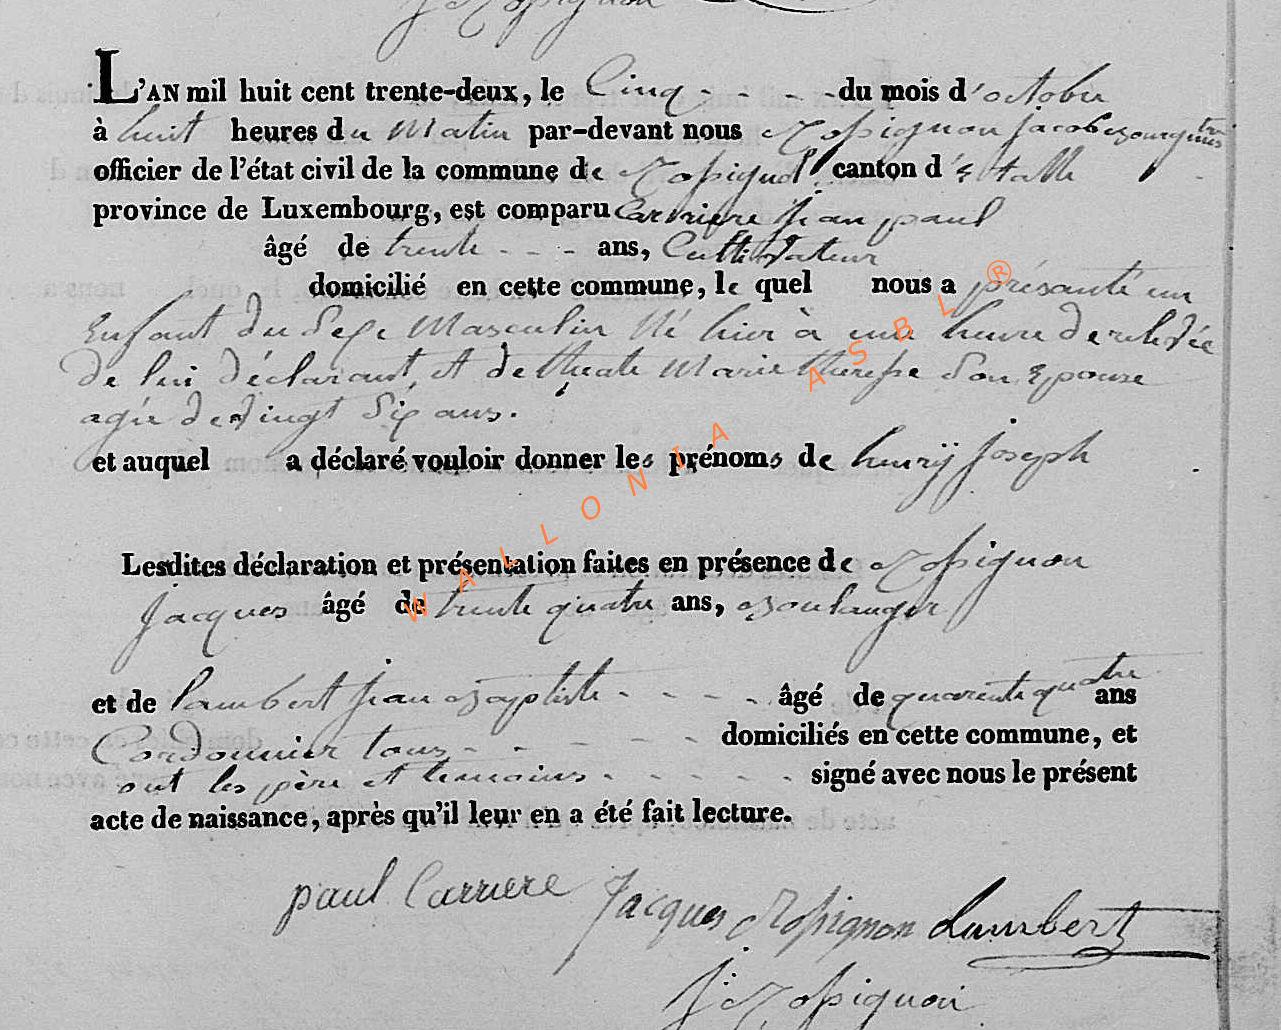 L'AN mil huit cent trente-deux, le Cinq - - - - du mois d'octobre
à huit heures du Matin par-devant nous Rossignon Jacob Bourguemestre
officier de l'état civil de la commune de Rossignol canton d'Etalle
province de Luxembourg, est comparu Carriere jean paul
âgé de trente - - - ans, Cultivateur
domicilié en cette commune, le quel nous a présenté un
Enfant du Sexe Masculin Né hier à une heure de relevée
de lui déclarant, et de Marie Therese Son Epouse
agée de vingt Six ans.
et auquel a déclaré vouloir donner les prénoms de henry joseph
Lesdites déclaration et présentation faites en présence de Rossignon
Jacques âgé de trente quatre ans, Boulanger
et de Lambert jean Baptiste - - - - âgé de quarente quatre ans
Cordonnier tous - - - - - domiciliés en cette commune, et
ont les père et temoins - - - - - signé avec nous le présent
acte de naissance, après qu'il leur en a été fait lecture.
paul Carriere Jacques Rossignon Lambert
J. Rossignon
WALLONIA ASBL ®